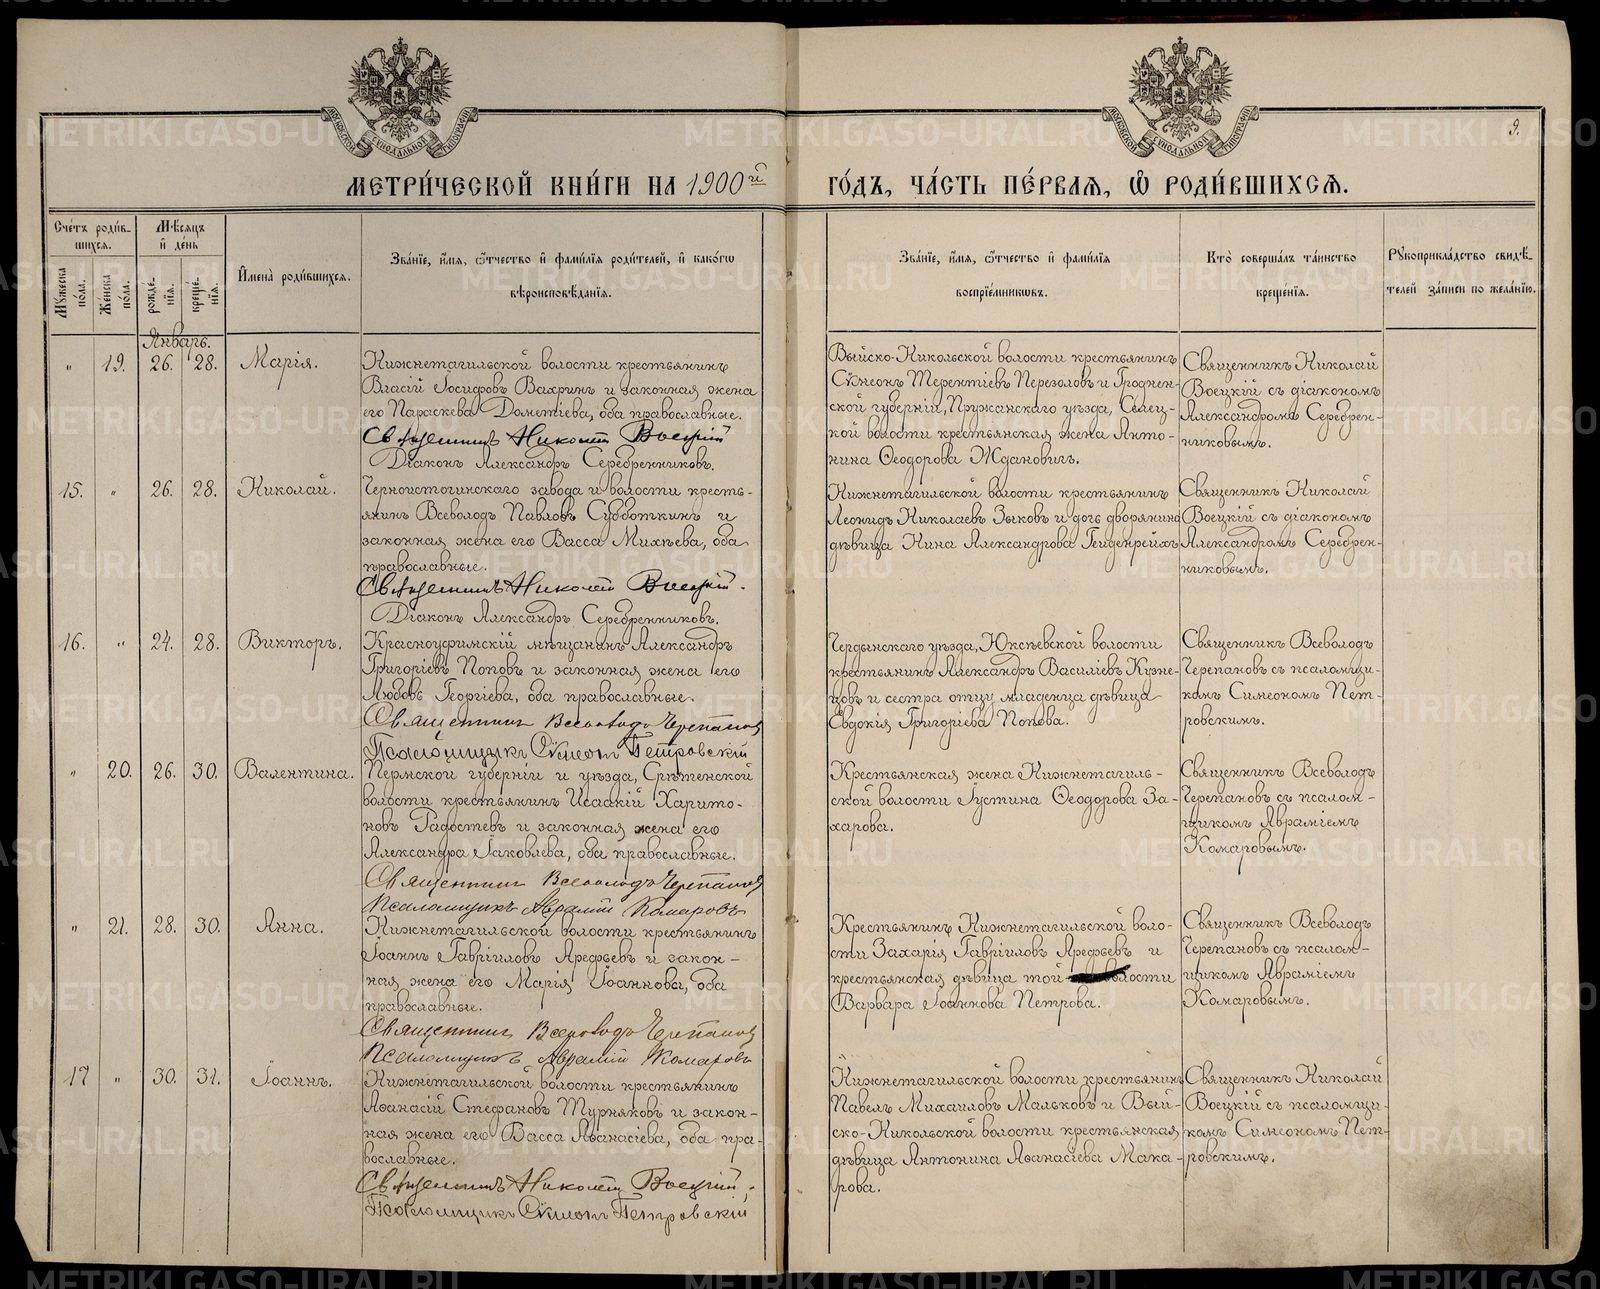 МЕТРИ́ЧЕСКОЙ КНИ́ГИ НА 1900й
ГО́ДЪ, ЧА́СТЬ ПЕ́РВАЯ, Ѿ РОДИ́ВШИХСЯ.
9.
Сче́тъ роди́в-
шихся.
Мѣсяцъ
и҆ де́нь
Мꙋжеска
по́ла.
Же́нска
по́ла.
рожде́-
нїя.
креще́-
нїя.
И҆мена̀ роди́вшихся.
Зва́нїе, и҆́мя, ѻ҆́тчество и҆ фами́лїя роди́телей, и҆ како́гѡ
вѣроисповѣ́данїя.
Зва́нїе, и҆́мя, ѻ҆́тчество и҆ фами́лїя
воспрїе́мникѡвъ.
Кто̀ соверша́лъ та́инство
креще́нїя.
Рꙋкоприкла́дство свидѣ́-
телей за́писи по жела́нїю.
Январь.
" 19. 26. 28. Марія.
Нижнетагильской волости крестьянинъ
Власій Іосифовъ Вахринъ и законная жена
его Параскева Дометіева, оба православные.
Священникъ Николай Воецкій
Діаконъ Александръ Серебренниковъ.
Выйско-Никольской волости крестьянинъ
Сѵмеонъ Терентіевъ Перезоловъ и Гроднен-
ской губерніи, Пружанскаго уѣзда, Селец-
кой волости крестьянская жена Анто-
нина Ѳеодорова Ждановичъ.
Священникъ Николай
Воецкій съ діакономъ
Александромъ Серебрен-
никовымъ.
15. " 26. 28. Николай.
Черноисточинскаго завода и волости кресть-
янинъ Всеволодъ Павловъ Субботкинъ и
законная жена его Васса Михѣева, оба
православные.
Священникъ Николай Воецкій.
Діаконъ Александръ Серебренниковъ.
Нижнетагильской волости крестьянинъ
Леонидъ Николаевъ Зыковъ и дочь дворянина
дѣвица Нина Александрова Гейденрейхъ
Священникъ Николай
Воецкій съ діакономъ
Александромъ Серебрен-
никовымъ.
16. " 24. 28. Викторъ.
Красноуфимскій мѣщанинъ Александръ
Григоріевъ Поповъ и законная жена его
Любовь Георгіева, оба православные.
Священникъ Всеволодъ Черепановъ
Псаломщикъ Сѵмеонъ Петровскій
Чердынскаго уѣзда, Юксѣевской волости
крестьянинъ Александръ Василіевъ Кузне-
цовъ и сестра отцу младенца дѣвица
Евдокія Григоріева Попова.
Священникъ Всеволодъ
Черепановъ съ псаломщи-
комъ Симеономъ Пет-
ровскимъ.
" 20. 26. 30. Валентина.
Пермской губерніи и уѣзда, Срѣтенской
волости крестьянинъ Исаакій Харито-
новъ Гадостевъ и законная жена его
Александра Іаковлева, оба православные.
Священникъ Всеволодъ Черепановъ
Псаломщикъ Аврамій Комаровъ
Крестьянская жена Нижнетагиль-
ской волости Іустина Ѳеодорова За-
харова.
Священникъ Всеволодъ
Черепановъ съ псалом-
щикомъ Авраміемъ
Комаровымъ.
" 21. 28. 30. Анна.
Нижнетагильской волости крестьянинъ
Іоаннъ Гавріиловъ Арефьевъ и закон-
ная жена его Марія Іоаннова, оба
православные.
Священникъ Всеволодъ Черепановъ
Псаломщикъ Аврамій Комаровъ
Крестьянинъ Нижнетагильской воло-
сти Захарія Гавріиловъ Арефьевъ и
крестьянская дѣвица той волости
Варвара Іоаннова Петрова.
Священникъ Всеволодъ
Черепановъ съ псалом-
щикомъ Авраміемъ
Комаровымъ.
17 " 30. 31. Іоаннъ.
Нижнетагильской волости крестьянинъ
Аѳанасій Стефановъ Турняковъ и закон-
ная жена его Васса Аѳанасіева, оба пра-
вославные.
Священникъ Николай Воецкій.
Псаломщикъ Сѵмеонъ Петровскій
Нижнетагильской волости крестьянинъ
Павелъ Михаиловъ Мальковъ и Вый-
ско-Никольской волости крестьянская
дѣвица Антонина Аѳанасіева Мака-
рова.
Священникъ Николай
Воецкій съ псаломщи-
комъ Симеономъ Пет-
ровскимъ.
METRIKI.GASO-URAL.RU